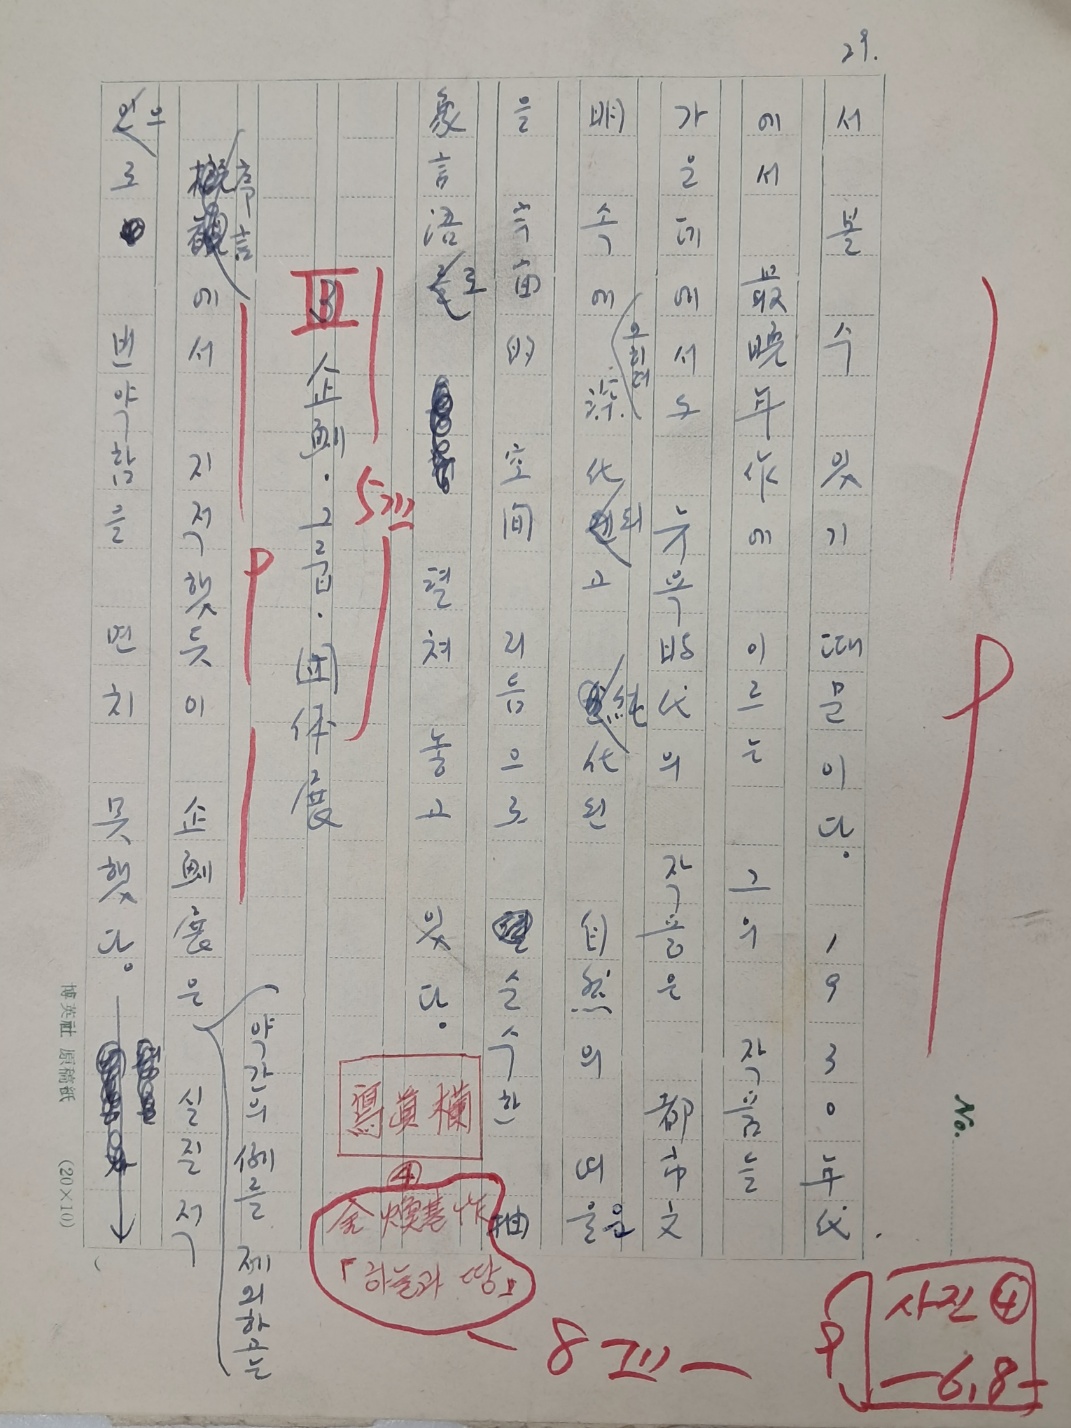 29.
서 볼 수 있기 때문이다. 1930年代
에서 最晩年作에 이르는 그의 작품들
가운데에서도 뉴욕時代의 작품은 都市文
明 속에 오히려 深化되고 純化된 自然의 을
을 추구的 空間 리듬으로 순수한 抽
象言語로 펼쳐 놓고 있다.
寫眞欄
④
金煥基作
「하늘과 땅」
8포
5포
Ⅲ 企劃·그룹·団体展
序言에서 지적했듯이 企劃展은 약간의 例를 제외하고는 실질적
으로 빈약함을 면치 못했다.
No.
사진 ④
6,8
博英社 原稿紙 (20×10)